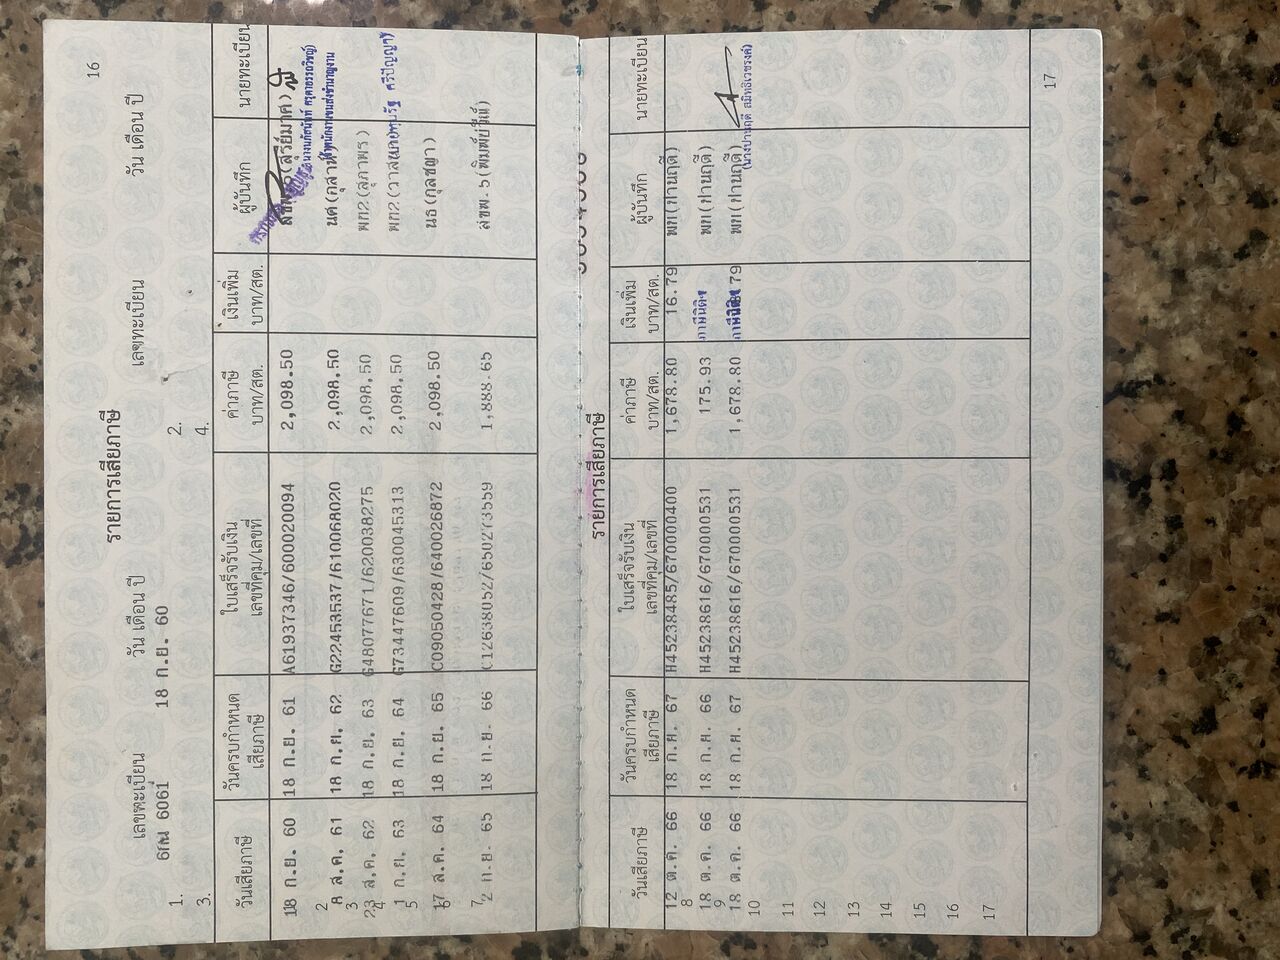 16
รายการเสียภาษี
เลขทะเบียน วัน เดือน ปี เลขทะเบียน วัน เดือน ปี
1. 6กน 6061 18 ก.ย. 60 2.
3. 4.
วันเสียภาษี วันครบกำหนดเสียภาษี ใบเสร็จรับเงิน เลขที่คุม/เลขที่ ค่าภาษี บาท/สต. เงินเพิ่ม บาท/สต. ผู้บันทึก นายทะเบียน
18 ก.ย. 60 18 ก.ย. 61 A61937346/600020094 2,098.50 (สุรีย์มาศ)
2 8 ส.ค. 61 18 ก.ย. 62 G22453537/610068020 2,098.50 นค(กุสาห์)
3 23 ส.ค. 62 18 ก.ย. 63 G48077671/620038275 2,098.50 พท2(สุภาพร)
4 1 ก.ย. 63 18 ก.ย. 64 G73447609/630045313 2,098.50 พท2(วาสนา ศรีปัญญา)
5
6 17 ส.ค. 64 18 ก.ย. 65 C09050428/640026872 2,098.50 นธ(กุลชญา)
7 2 ก.ย. 65 18 ก.ย. 66 C12638052/650273559 1,888.65 สขพ.5(พิมพ์ปวีณ์)
รายการเสียภาษี
วันเสียภาษี วันครบกำหนดเสียภาษี ใบเสร็จรับเงิน เลขที่คุม/เลขที่ ค่าภาษี บาท/สต. เงินเพิ่ม บาท/สต. ผู้บันทึก นายทะเบียน
12 ต.ค. 66 18 ก.ย. 67 H45238485/670000400 1,678.80 16.79 พท(ปานฤดี)
8
18 ต.ค. 66 18 ก.ย. 66 H45238616/670000531 175.93 พท(ปานฤดี)
9
18 ต.ค. 66 18 ก.ย. 67 H45238616/670000531 1,678.80 .79 พท(ปานฤดี)
(นางปานฤดี สมิทธิเวชรงค์)
10
11
12
13
14
15
16
17
17